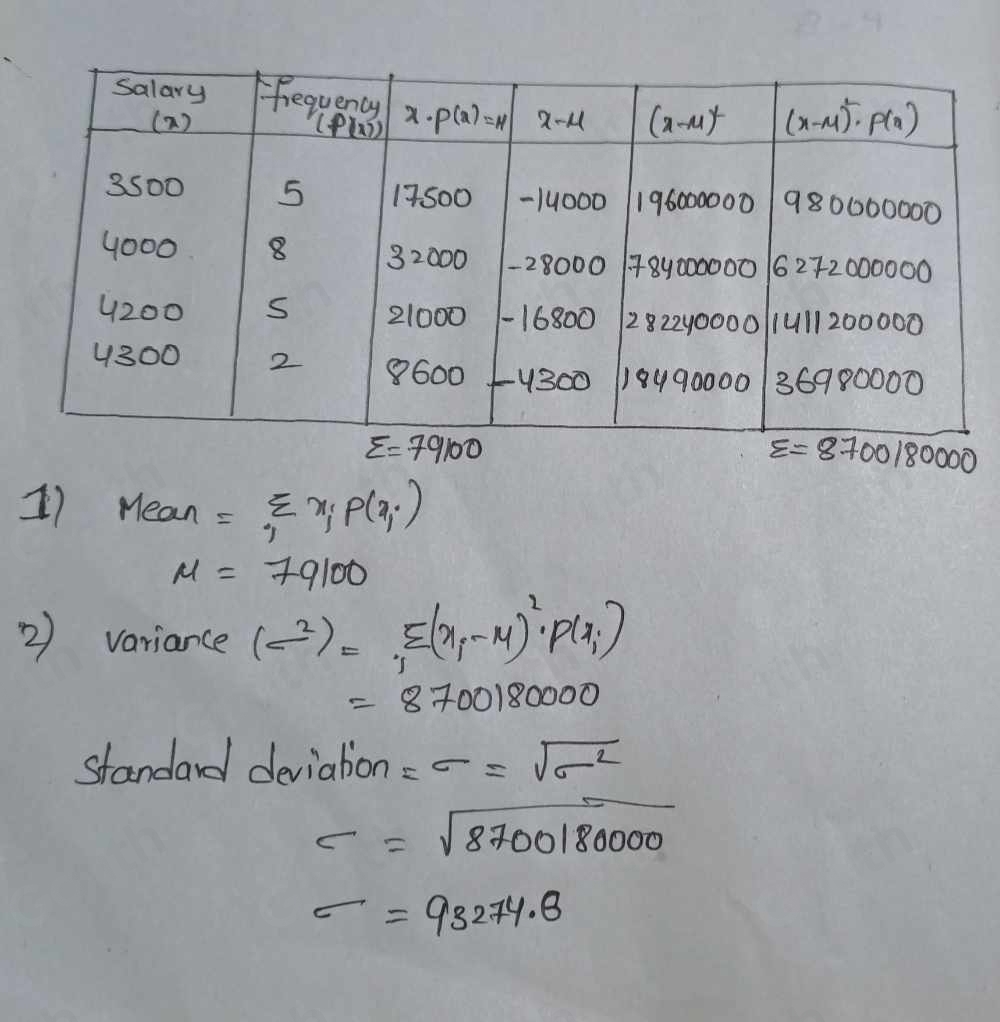 Salary (x) | frequency (P(x)) | x·P(x)=M | x-M | (x-M)² | (x-M)²·P(x)
3500 | 5 | 17500 | -14000 | 196000000 | 980000000
4000 | 8 | 32000 | -28000 | 784000000 | 6272000000
4200 | 5 | 21000 | -16800 | 282240000 | 1411200000
4300 | 2 | 8600 | -4300 | 18490000 | 36980000
Σ=79100 Σ=8700180000
1) Mean = Σᵢ xᵢ P(xᵢ)
M = 79100
2) variance (σ²) = Σᵢ(xᵢ-M)²·P(xᵢ)
= 8700180000
standard deviation = σ = √σ²
σ = √8700180000
σ = 93274.8